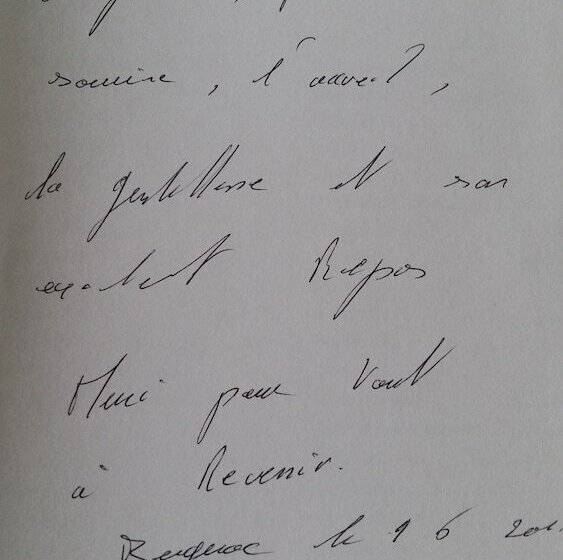 sourire, l'accueil,
la gentillesse et son
excellent Repos
Merci pour tout
à Revenir.
le 9 6 201